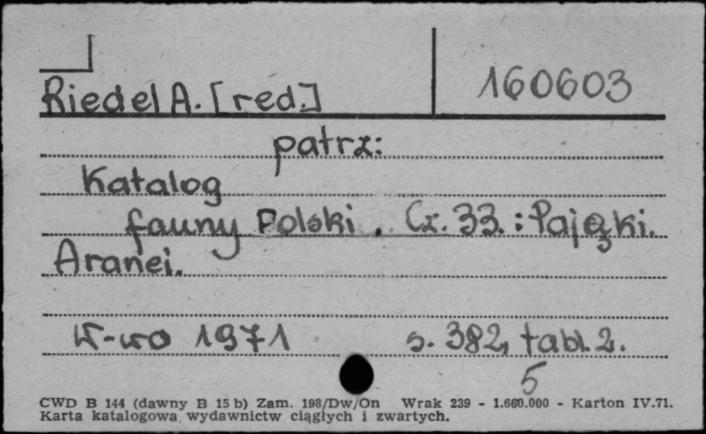 Riedel A. [red.] 160603
patrz:
Katalog
fauny Polski. Cz. 33.: Pająki.
Aranei.
W-wa 1971 s. 382, tabl. 2.
5
CWD B 144 (dawny B 15 b) Zam. 198/Dw/On Wrak 239 - 1.660.000 - Karton IV.71.
Karta katalogowa wydawnictw ciągłych i zwartych.